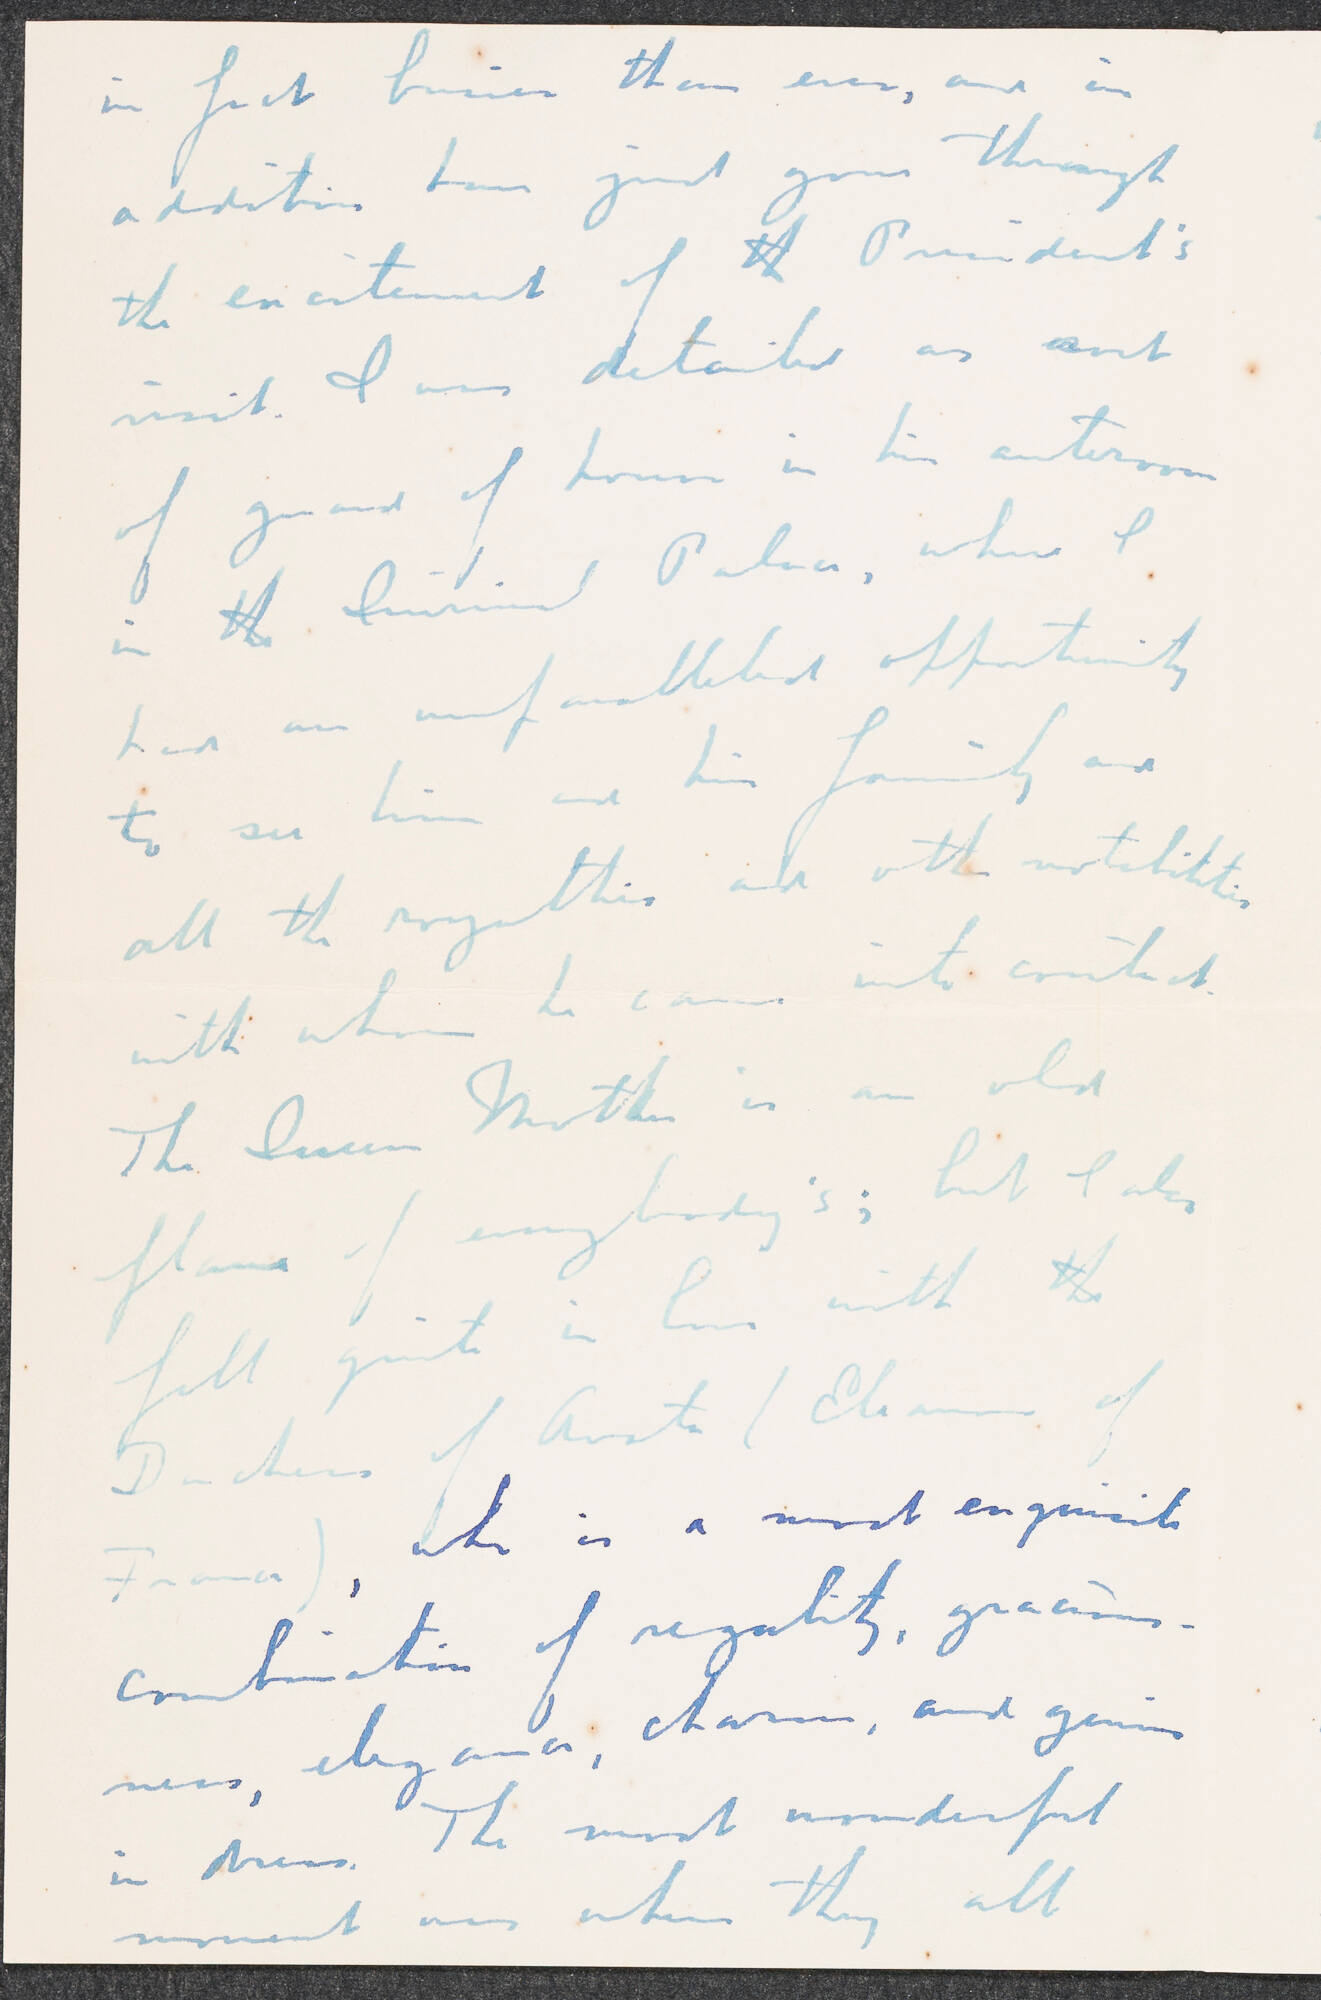 in fact busier than ever, and in
addition have just gone through
the excitement of the President's
visit. I was detailed as sort
of guard of honor in his anteroom
in the Quirinal Palace, where I
had an unparalleled opportunity
to see him and his family and
all the royalties and other notabilities
with whom he came into contact.
The Queen Mother is an old
flame of everybody's; but I also
fell quite in love with the
Duchess of Aosta (Eleanor of
France), who is a most exquisite
combination of regality, gracious-
ness, elegance, charm, and genius
in dress. The most wonderful
moment was when they all